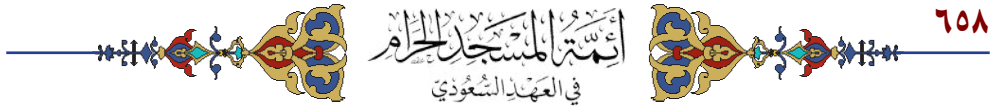 ٦٥٨
أَئِمَّةُ المَسْجَدِ الحَرَامِ
فِي العَهْدِ السُّعُودِيّ